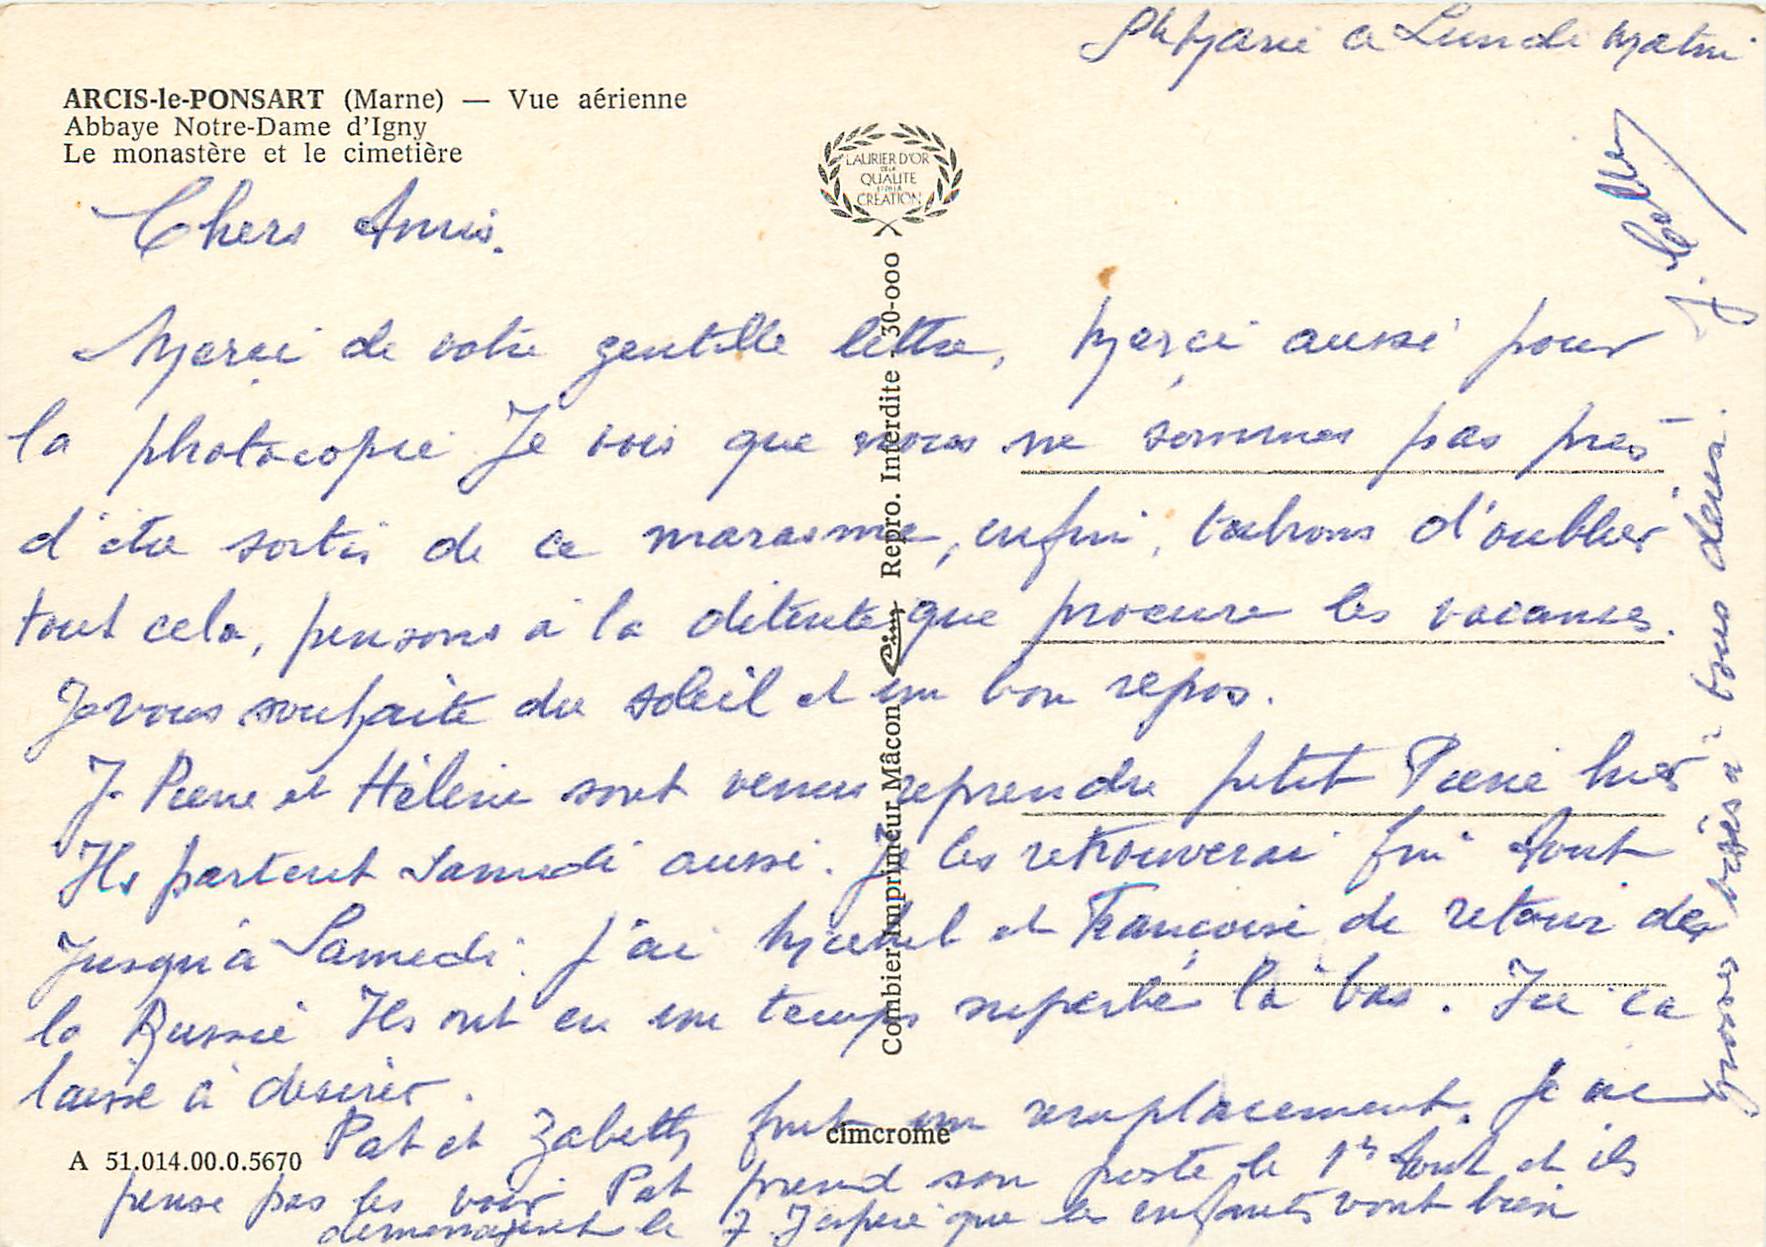 Ste Marie ce Lundi Matin
ARCIS-le-PONSART (Marne) — Vue aérienne
Abbaye Notre-Dame d'Igny
Le monastère et le cimetière
LAURIER D'OR
DE LA
QUALITE
ET DE LA
CREATION
Chers Amis.
Merci de votre gentille lettre, Merci aussi pour
la photocopie Je vois que nous ne sommes pas près
d'être sortis de ce marasme, enfin, tachons d'oublier
tout cela, pensons à la détente que procure les vacances.
Je vous souhaite du soleil et un bon repos.
J. Pierre et Hélène sont venus reprendre petit Pierre hier
Ils partent Samedi aussi. Je les retrouverai fin Aout
Jusqu'à Samedi. J'ai Michel et Françoise de retour de
la Russie Ils ont eu un temps superbe là bas. Ici ca
laisse à desirer.
Pat et Zabeth font un remplacement. Je ne
pense pas les voir Pat prend son poste le 1er Aout et ils
demenagent le 7 J'espère que les enfants vont bien
grosses bises à tous deux.
J.
Combier Imprimeur Mâcon Cim Repro. Interdite 30-000
cimcrome
A 51.014.00.0.5670